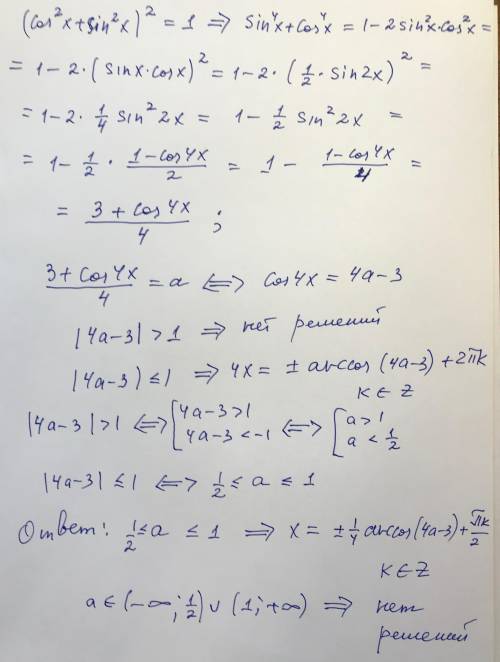 (cos²x+sin²x)² = 1 ⇒ sin⁴x+cos⁴x = 1-2sin²x·cos²x =
= 1-2·(sinx·cosx)² = 1-2·(1/2·sin2x)² =
= 1-2·1/4 sin²2x = 1-1/2 sin²2x =
= 1-1/2·(1-cos4x)/2 = 1-(1-cos4x)/4 =
= (3+cos4x)/4 ;
(3+cos4x)/4 = a ⇔ cos4x = 4a-3
|4a-3|>1 ⇒ нет решений
|4a-3)≤1 ⇒ 4x = ± arccos(4a-3)+2πk
k∈Z
|4a-3|>1 ⇔ [4a-3>1 4a-3<-1 ⇔ [a>1 a<1/2
|4a-3|≤1 ⇔ 1/2≤a≤1
Ответ: 1/2≤a≤1 ⇒ x = ±1/4 arccos(4a-3)+πk/2
k∈Z
a∈(-∞;1/2)∪(1;+∞) ⇒ нет
решений